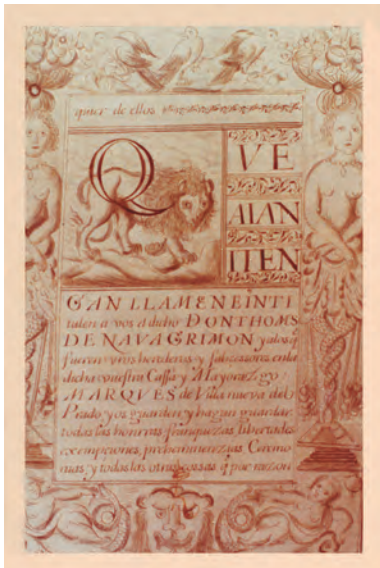 quier de ellos
QVE
AIAN
ITEN
GAN LLAMEN EINTI
tulen a vos el dicho DON THOMS
DE NAVA GRIMON, y a los q
fueren vros herederos y subcessores en la
dicha vuestra Cassa y Mayorazgo
MARQUES de Villa nueva del
Prado y os guarden y hagan guardar
todas las honrras franquezas libertades
exempciones, preheminenzias, Ceremo
nias y todas las otras cossas q por razon